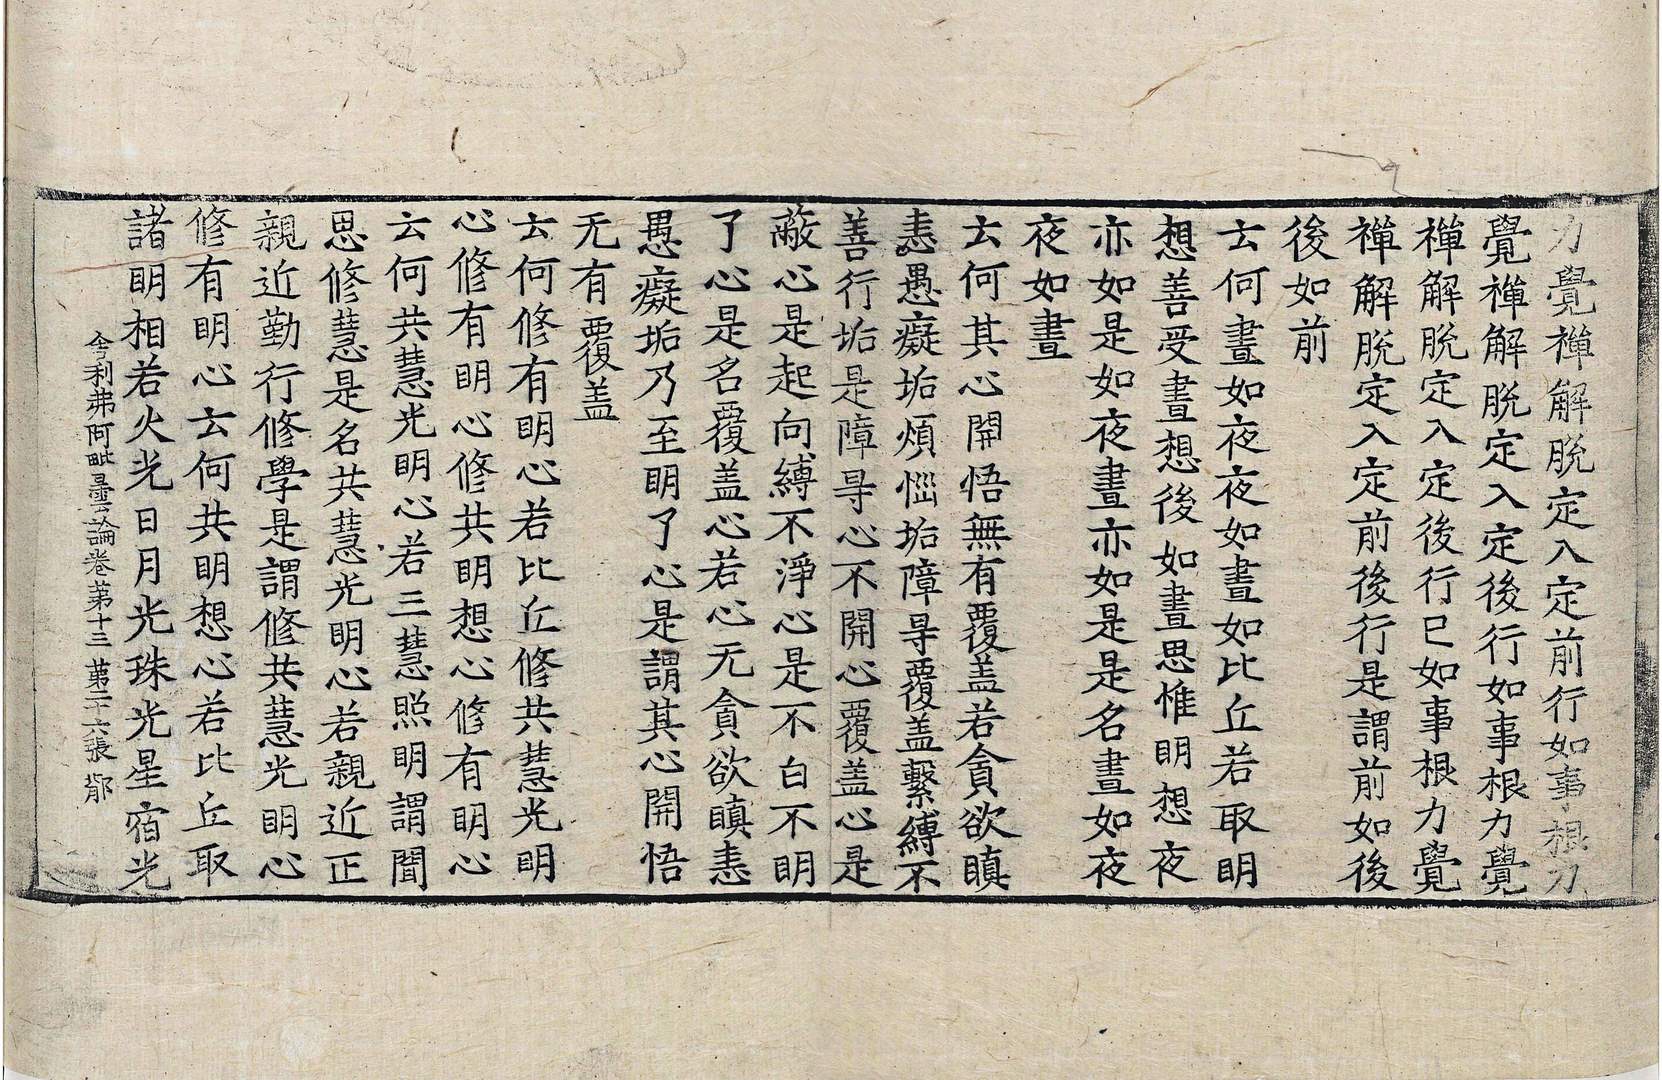 力覺禪解脫定入定前行如事根力
覺禪解脫定入定後行如事根力覺
禪解脫定入定後行已如事根力覺
禪解脫定入定前後行是謂前如後
後如前
云何晝如夜夜如晝如比丘若取明
想善受晝想後如晝思惟明想夜
亦如是如夜晝亦如是是名晝如夜
夜如晝
云何其心開悟無有覆盖若貪欲瞋
恚愚癡垢煩惱垢障㝵覆盖繫縛不
善行垢是障㝵心不開心覆盖心是
蔽心是起向縛不淨心是不白不明
了心是名覆盖心若心无貪欲瞋恚
愚癡垢乃至明了心是謂其心開悟
无有覆盖
云何修有明心若比丘修共慧光明
心修有明心修共明想心修有明心
云何共慧光明心若三慧照明謂聞
思修慧是名共慧光明心若親近正
親近勤行修學是謂修共慧光明心
修有明心云何共明想心若比丘取
諸明相若火光日月光珠光星宿光
舍利弗阿毗曇論卷第十三 第二十六張